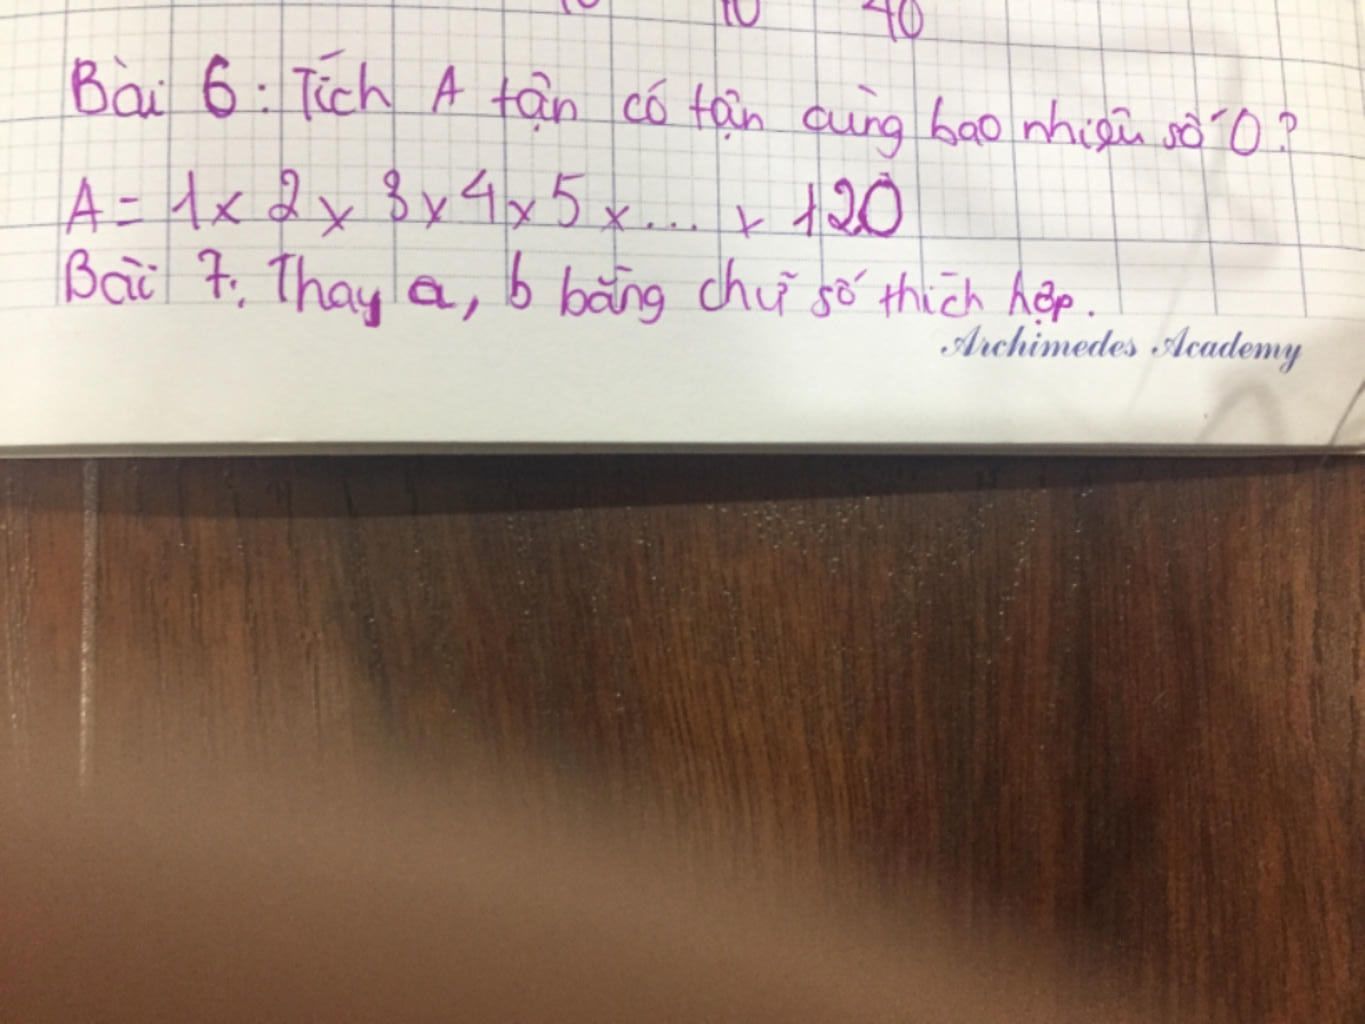 10 40
Bài 6: Tích A tận có tận cùng bao nhiêu số 0?
A = 1 x 2 x 3 x 4 x 5 x ... x 120
Bài 7: Thay a, b bằng chữ số thích hợp.
Archimedes Academy